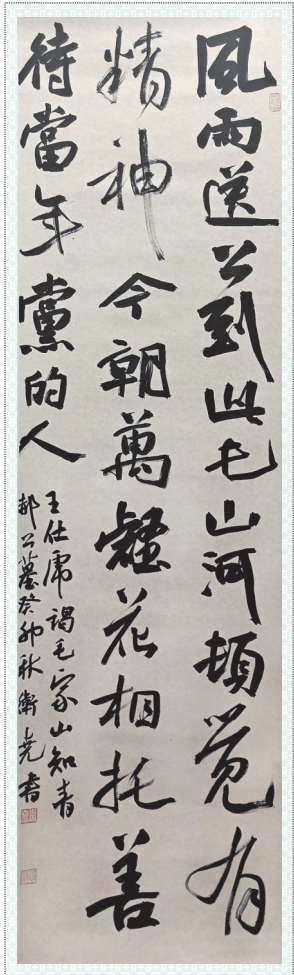 風雨送公到此屯山河頓覺有
精神今朝萬壑花相托善
待當年黨的人
王仕席謁毛家山知青
郝公墓癸卯秋衛堯書